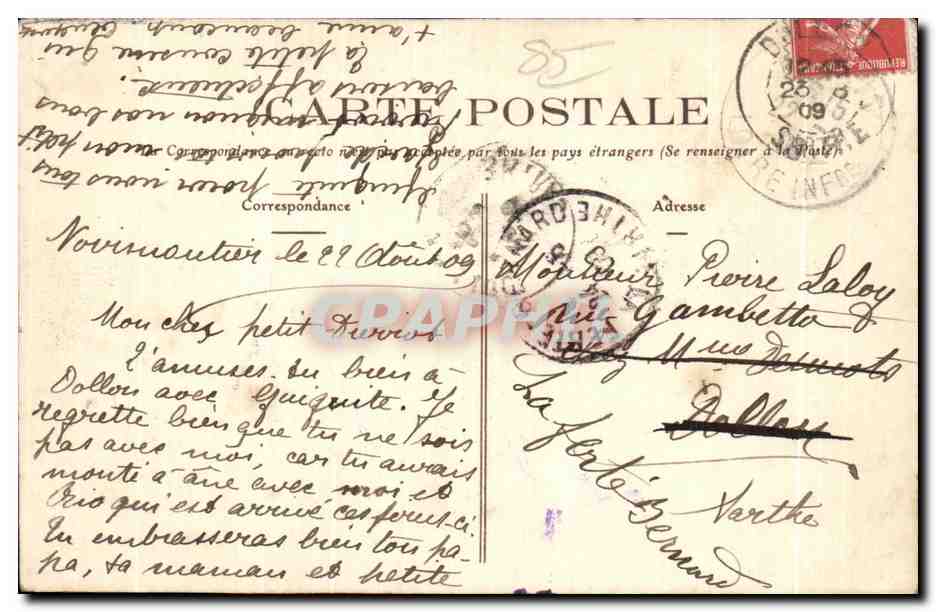 CARTE POSTALE
La Correspondance au recto n'est pas acceptée par tous les pays étrangers (Se renseigner à la Poste)
Correspondance
Noirmoutier le 22 Août 09
Mon cher petit
T'amuses-tu bien à
Dollon avec Guiguite. Je
regrette bien que tu ne sois
pas avec moi, car tu aurais
monté à âne avec moi et
qui est arrivé ces jours-ci
Tu embrasseras bien ton pa-
pa, ta maman et petite
Guiguite pour nous tous
mon petit
nos bons
baisers affectueux.
Ta petite cousine qui
t'aime beaucoup
Adresse
Monsieur Pierre Laloy
rue Gambetta
Dollon
La Ferté Bernard
Sarthe
85
DOLLON
23 8
09
SARTHE
REPUBLIQUE FRANÇAISE
CRAPHIL